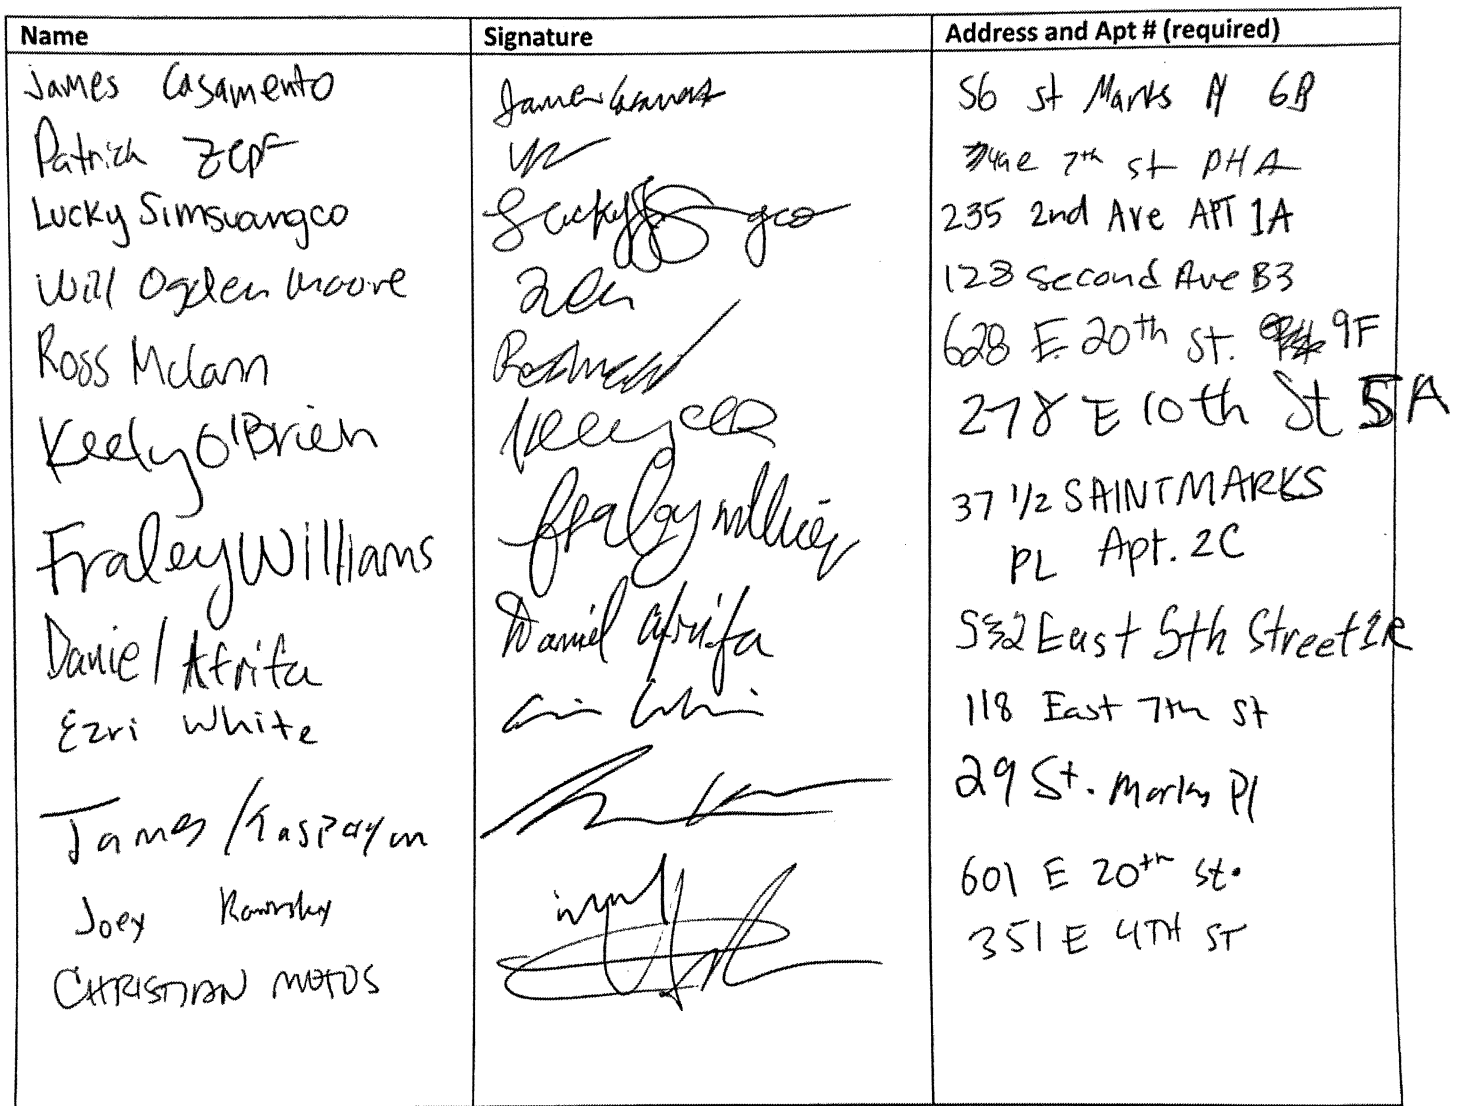 Name Signature Address and Apt # (required)
James Casamento 56 St Marks Pl 6B
Patrick Zepf 7th St PHA
Lucky Simsuangco Lucky 235 2nd Ave APT 1A
Will Ogden Moore 123 Second Ave B3
Ross McCann 628 E 20th St. 9F
Keely O'Brien 278 E 10th St 5A
Fraley Williams Fraley Williams 37 1/2 SAINT MARKS
PL Apt. 2C
Daniel Afrifa Daniel Afrifa 532 East 5th Street 2R
Ezri White 118 East 7th St
James 29 St. Marks Pl
Joey 601 E 20th St.
CHRISTIAN MOTOS 351 E 4TH ST